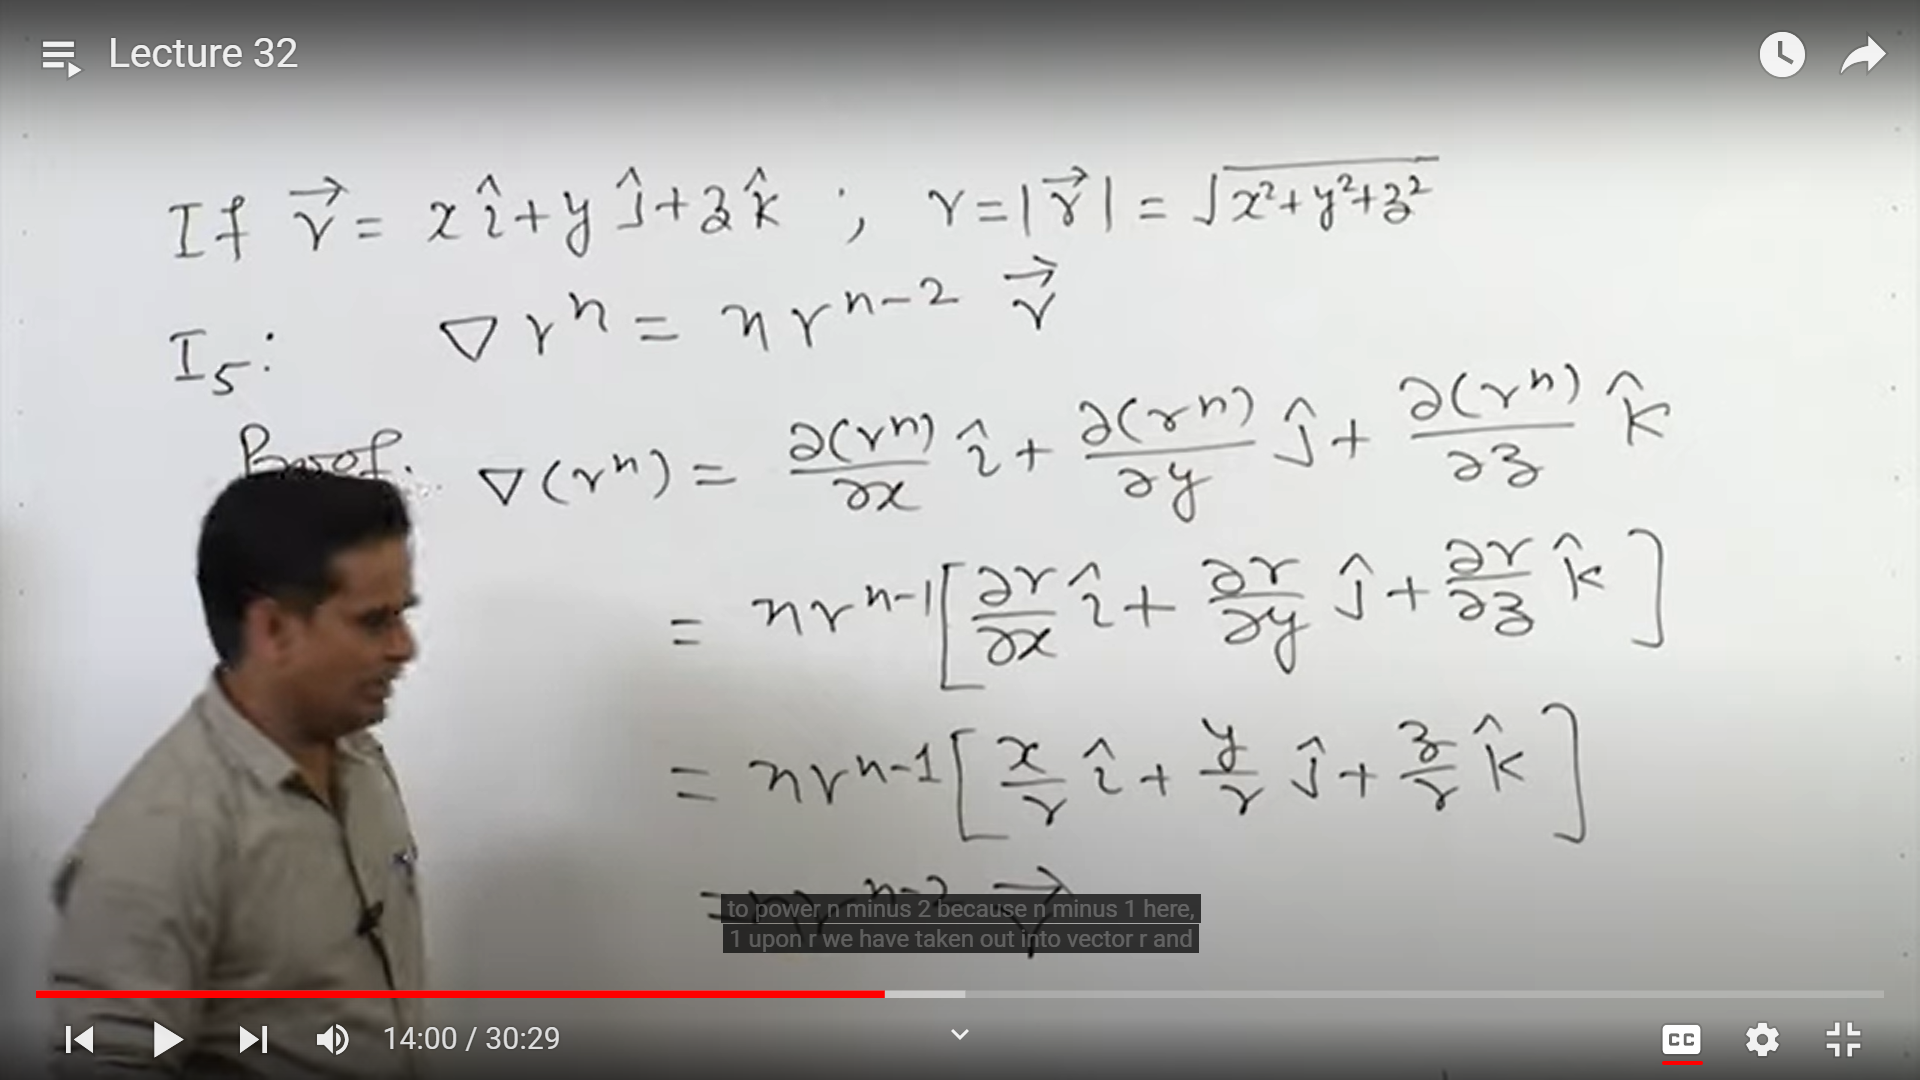 Lecture 32
If r⃗ = x î + y ĵ + z k̂ ; r = |r⃗| = √(x²+y²+z²)
I₅: ∇ rⁿ = n rⁿ⁻² r⃗
Proof. ∇(rⁿ) = ∂(rⁿ)/∂x î + ∂(rⁿ)/∂y ĵ + ∂(rⁿ)/∂z k̂
= n rⁿ⁻¹ [∂r/∂x î + ∂r/∂y ĵ + ∂r/∂z k̂]
= n rⁿ⁻¹ [x/r î + y/r ĵ + z/r k̂]
= n rⁿ⁻² r⃗
to power n minus 2 because n minus 1 here,
1 upon r we have taken out into vector r and
14:00 / 30:29
CC